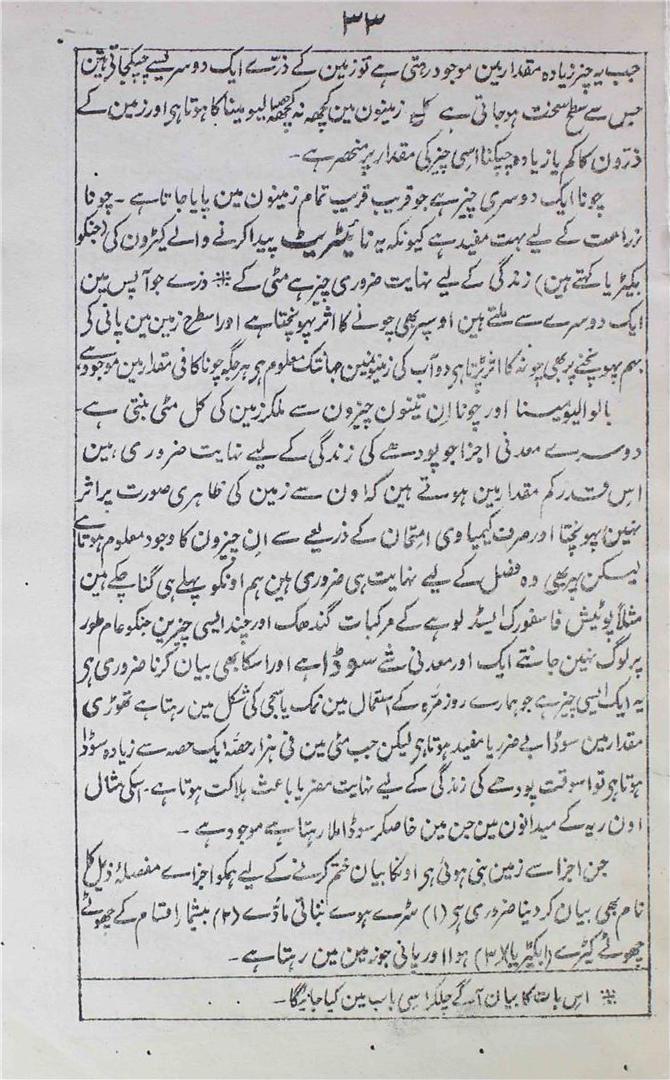 ۳۳
جب یہ چیز زیادہ مقدار مین موجود رہتی ہے تو زمین کے ذرّے ایک دوسرے سے چپک جاتے ہین
جس سے سطح سخت ہو جاتی ہے کل زمینون مین کچھہ نہ کچھہ حصہ الیومینا کا ہوتا ہی اور زمین کے
ذرّون کا کم یا زیادہ چپکنا اسی چیز کی مقدار پر منحصر ہے ۔
چونا ایک دوسری چیز ہے جو قریب قریب تمام زمینون مین پایا جاتا ہے ۔ چونا
زراعت کے لیے بہت مفید ہے کیونکہ یہ نائیٹریٹ پیدا کرنے والے کیڑون کی (جنکو
بکیٹریا کہتے ہین) زندگی کے لیے نہایت ضروری چیز ہے مٹی کے * ذرے جو آپس مین
ایک دوسرے سے ملتے ہین اوسپر بھی چونے کا اثر پہونچتا ہے اور سطح زمین مین پانی کی
بہم پہونچنے پر بھی چونہ کا اثر پڑتا ہی دوآب کی زمینون مین جہانتک معلوم ہی ہر جگہ چونا کافی مقدار مین موجود ہے
بالو الیومینا اور چونا اِن تینون چیزون سے ملکر زمین کی کل مٹی بنتی ہے ۔
دوسرے معدنی اجزا جو پودھے کی زندگی کے لیے نہایت ضروری ہین
اس قدر کم مقدار مین ہوتے ہین کہ اون سے زمین کی ظاہری صورت پر اثر
نہین پہونچتا اور صرف کیمیاوی امتحان کے ذریعے سے اِن چیزون کا وجود معلوم ہوتا ہے
لیکن پھر بھی وہ فصل کے لیے نہایت ہی ضروری ہین ہم اونکو پہلے ہی گنا چکے ہین
مثلاً پوٹیش فاسفورک ایسڈ لوہے کے مرکبات گندھک اور چند ایسی چیزین جنکو عام طور
پر لوگ نہین جانتے ایک اور معدنی شے سوڈا ہے اور اسکا بھی بیان کرنا ضروری ہی
یہ ایک ایسی چیز ہے جو ہمارے روز مرہ کے استعمال مین نمک یا سجّی کی شکل مین رہتا ہے تھوڑی
مقدار مین سوڈا بے ضرر یا مفید ہوتا ہی لیکن جب مٹی مین فی ہزار حصّہ ایک حصہ سے زیادہ سوڈا
ہوتا ہی تو اسوقت پودھے کی زندگی کے لیے نہایت مضر یا باعث ہلاکت ہوتا ہے ۔ اسکی مثال
اون ریہ کے میدانون مین جن مین خاصکر سوڈا ملا رہتا ہے موجود ہے ۔
جن اجزا سے زمین بنی ہوئی ہی اونکا بیان ختم کرنے کے لیے ہمکو اجزاے مفصلۂ ذیل کا
نام بھی بیان کر دینا ضروری ہی (۱) سڑے ہوے نباتی مادّے (۲) بیشمار اقسام کے چھوٹے
چھوٹے کیڑے (بکیٹریا) (۳) ہوا اور پانی جو زمین مین رہتا ہے ۔
* اس بات کا بیان آگے چلکر اسی باب مین کیا جائیگا ۔